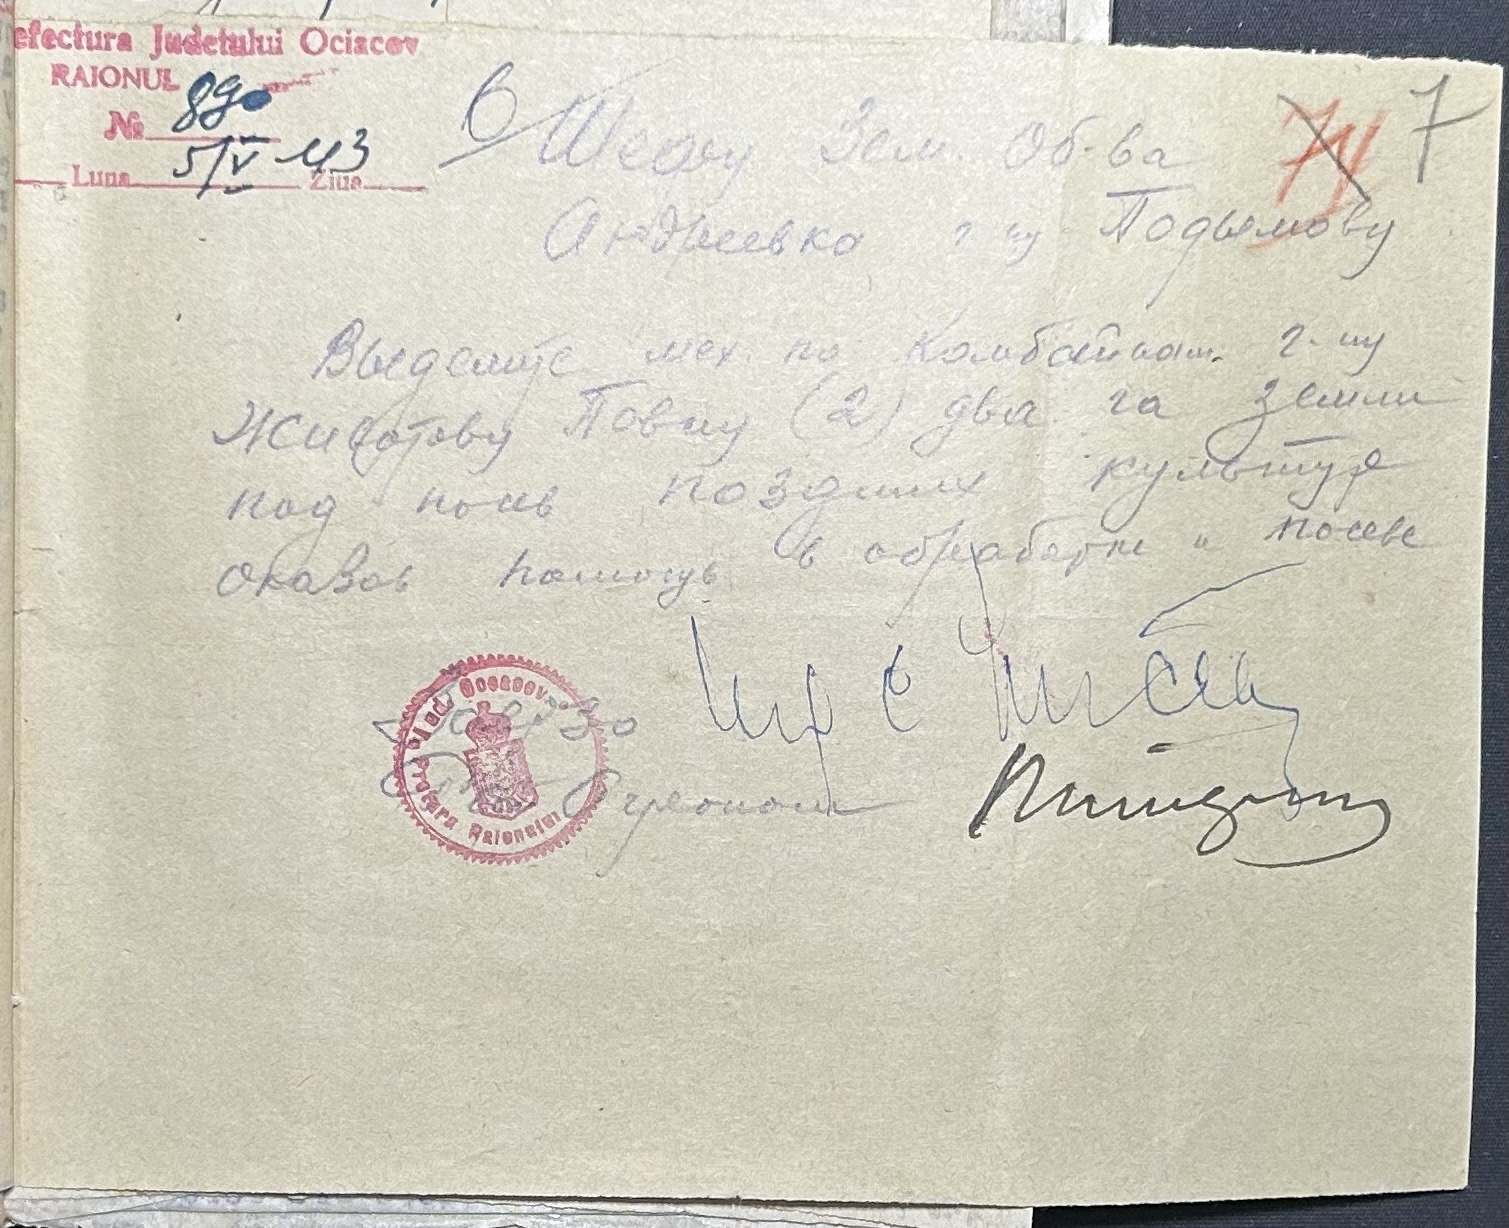 efectura Județului Ociacov
RAIONUL
№ 890
Luna 5/V-43 Ziua
6
7
Шефу Зем. Об-ва
Андреевка г-ну Подымову
Выделите мех. по комбайнам г-ну
Животову Павлу (2) два га земли
под посев поздних культур
оказав помощь в обработке и посеве
Агроном
Jud. Oceacov
Pretura Raionului